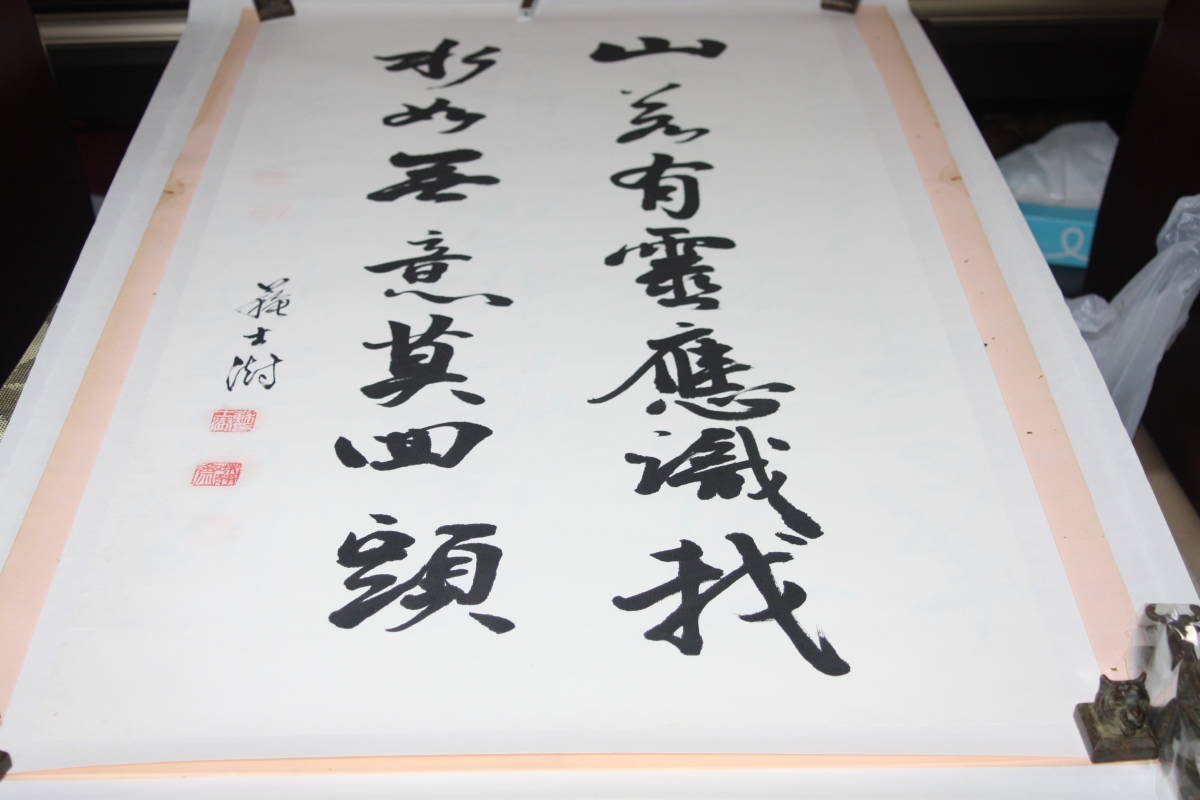 山若有靈應識我
水如無意莫回頭
蘇士澍